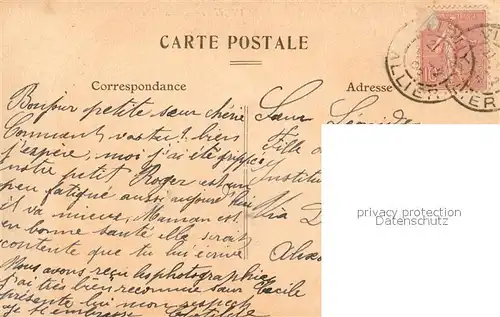 CARTE POSTALE
Correspondance
Adresse
ALLIER
Bonjour petite sœur chérie
Comment vas tu? bien
j'espère, moi j'ai été grippée
notre petit Roger est un
peu fatigué aussi aujourd'hui
il va mieux, Maman est
en bonne santé elle serait
contente que tu lui écrive
Nous avons reçu les photographies
j'ai très bien reconnue sœur Cécile
présente lui mon respect
je t'embrasse Clotilde
Sœur
Fille
Institu
Via D
Alex
privacy protection
watermark